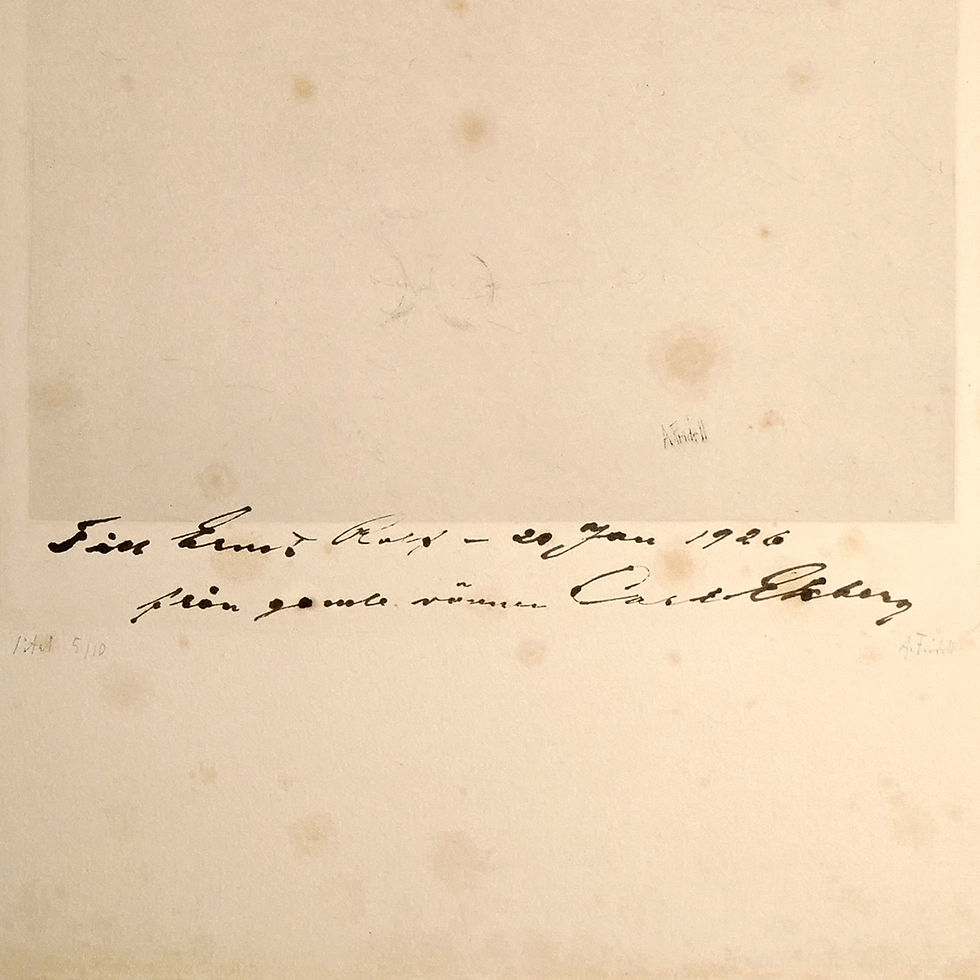 A Fridell
Till Ernst Rolf – 20 Jan 1926
från gamle vännen Carl Ekberg
1'état 5/10
A. Fridell